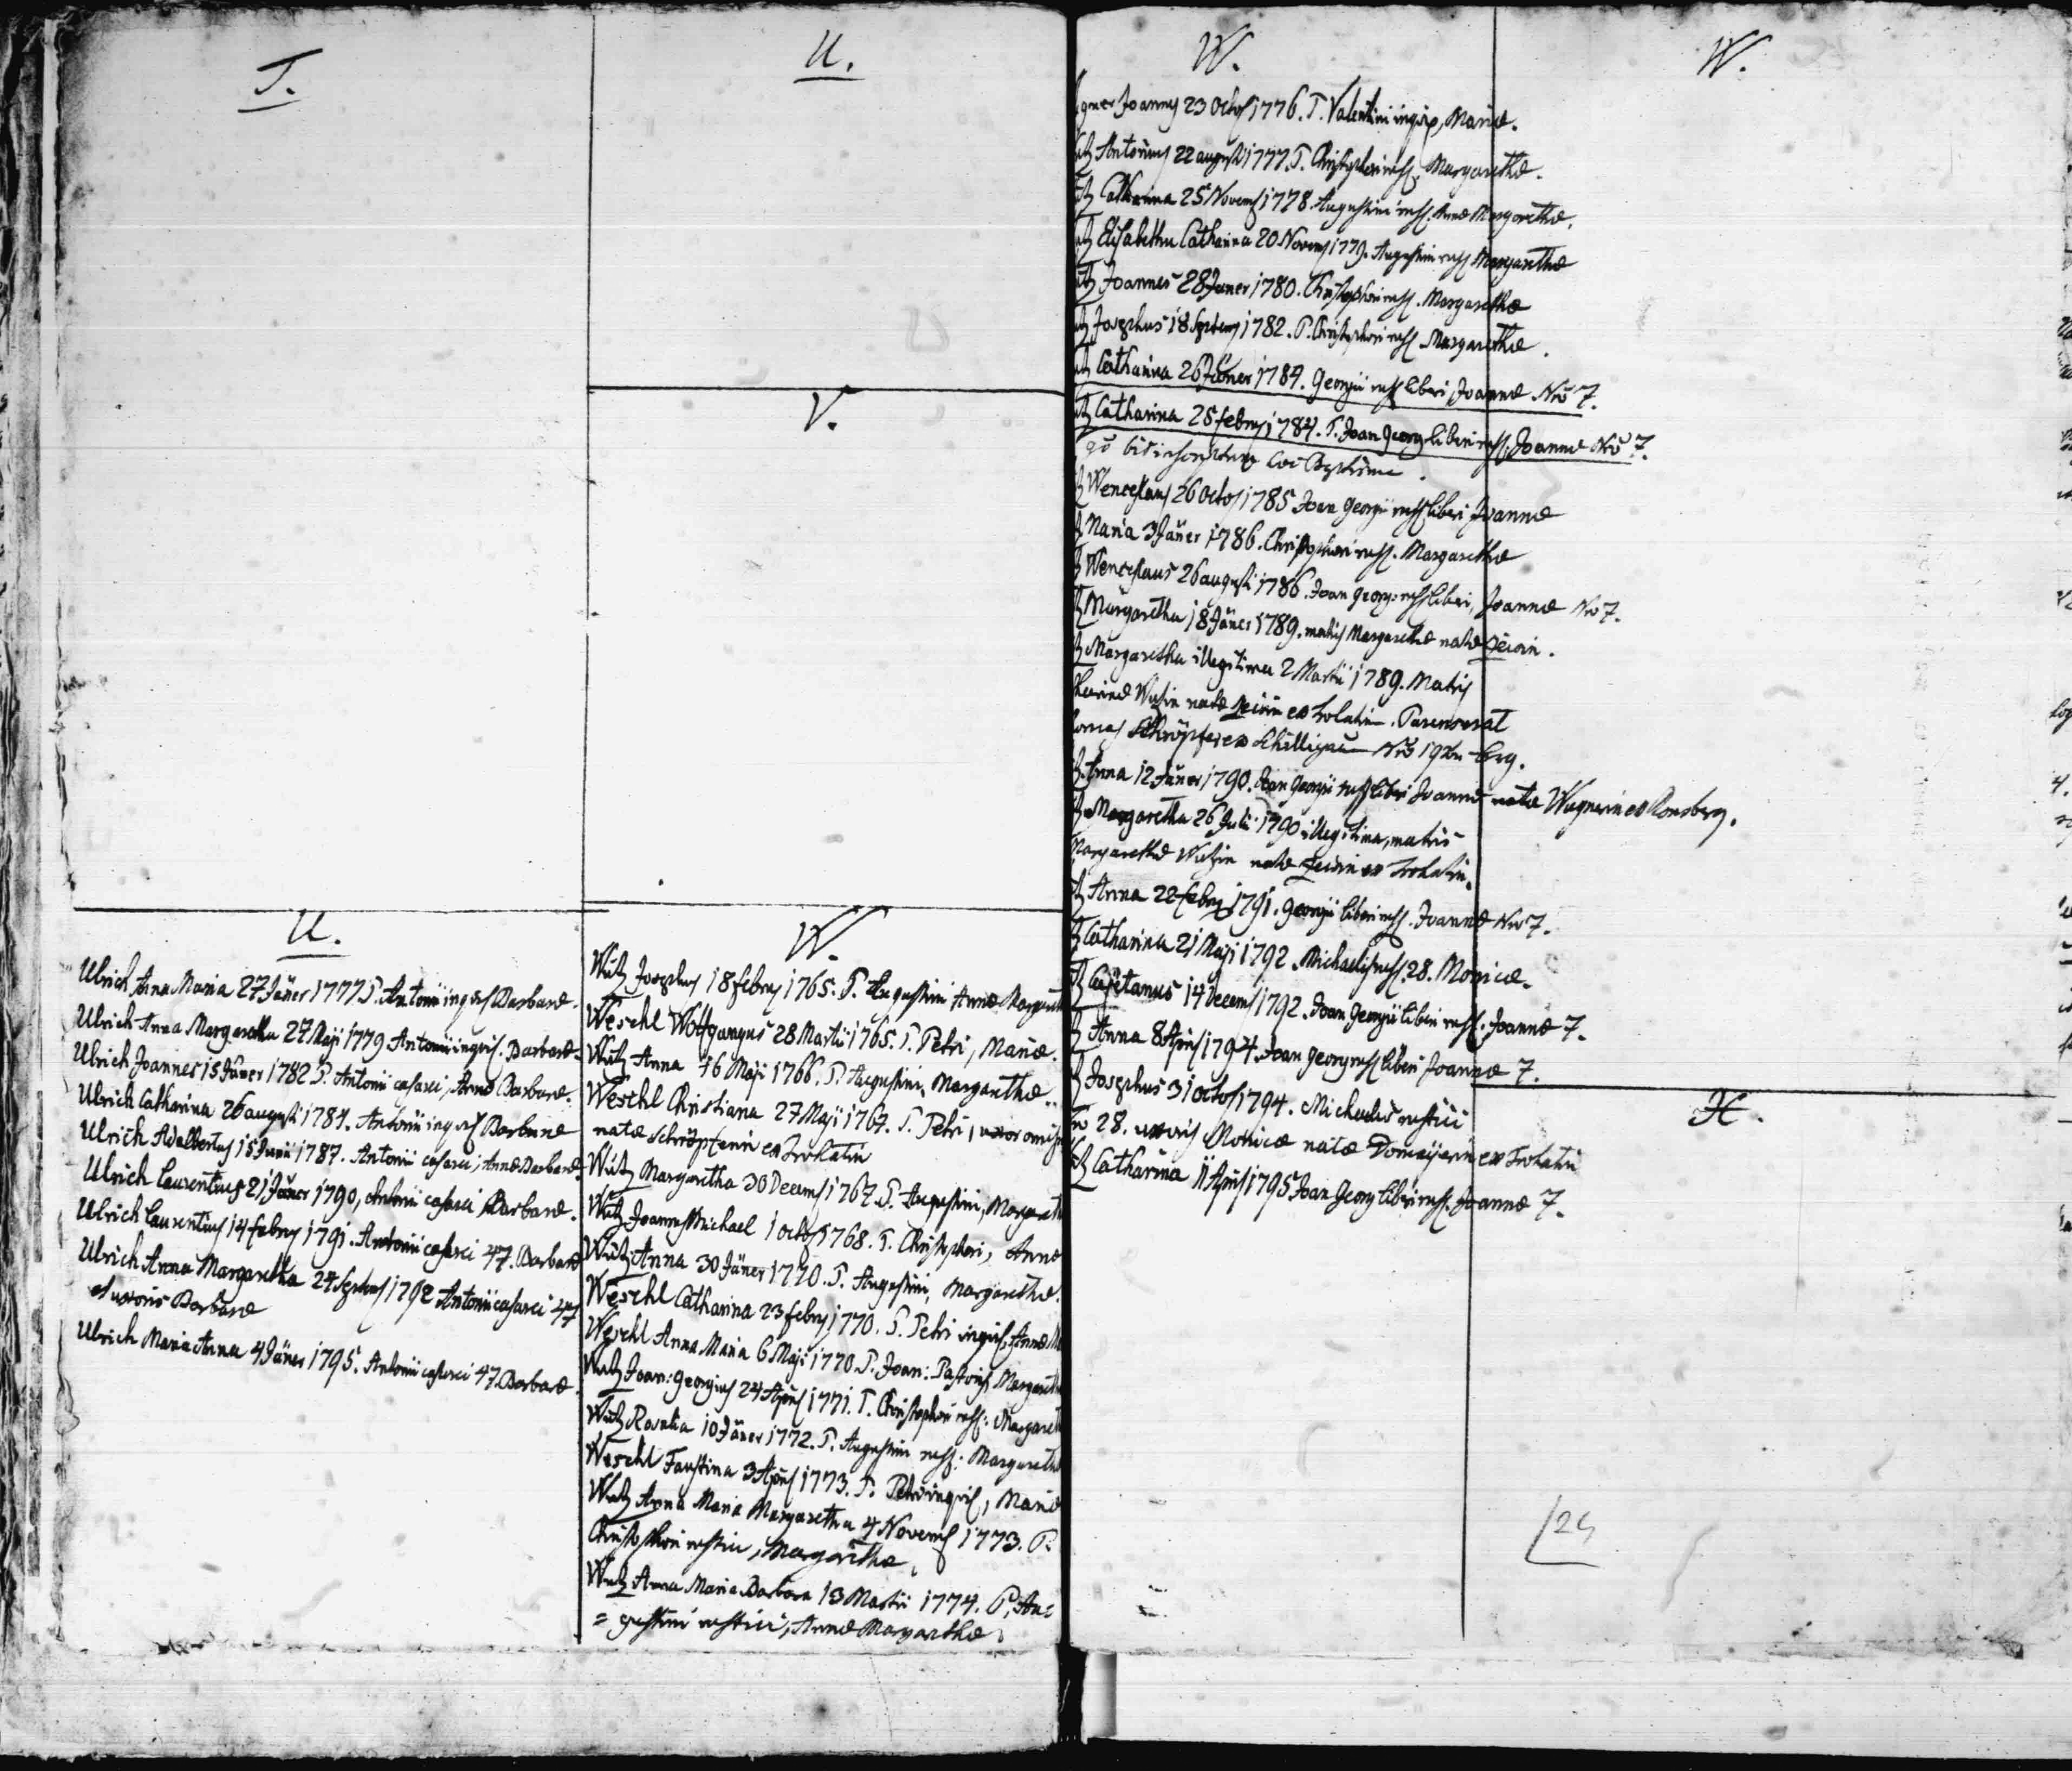 T.
U.
Ulrich Anna Maria 27 Jäner 1777 P. Antonii inquil Barbaræ.
Ulrich Anna Margaretha 27 Maji 1779 Antonii inquil. Barbaræ.
Ulrich Joannes 15 Jäner 1782 P. Antonii casarii, Annæ Barbaræ.
Ulrich Catharina 26 augusti 1784. Antonii inquil Barbaræ
Ulrich Adalbertus 15 Junii 1787. Antonii casarii, Annæ Barbaræ.
Ulrich Laurentius 21 Jäner 1790, Antonii casarii Barbaræ.
Ulrich Laurentius 14 febry 1791. Antonii casarii 47. Barbaræ
Ulrich Anna Margaretha 24 Septem 1792 Antonii casarii 47
et uxoris Barbaræ
Ulrich Maria Anna 4 Jäner 1795. Antonii casarii 47. Barbaræ.
U.
V.
W.
Wutz Josephus 18 febry 1765. P. Augustini Annæ Margareth
Weschl Wolfgangus 28 Martii 1765. P. Petri, Mariæ.
Wutz Anna 16 Maji 1766. P. Augustini, Margarethæ.
Weschl Christiana 27 Maji 1767. P. Petri, uxor
natæ Schröpferin ex Trohatin
Wutz Margaretha 30 Decemb 1767. P. Augustini, Margareth
Wutz Joannes Michael 1 Octob 1768. P. Christophori, Annæ
Wutz Anna 30 Jäner 1770. P. Augustini, Margarethæ.
Weschl Catharina 23 febry 1770. P. Petri inquil, Annæ
Weschl Anna Maria 6 Maji 1770. P. Joan: Pastoris Margareth
Wutz Joan: Georgius 24 April 1771. P. Christophori rust: Margareth
Wutz Rosalia 10 Jäner 1772. P. Augustini rust: Margareth
Weschl Faustina 3 April 1773. P. Petri inquil, Mariæ
Wutz Anna Maria Margaretha 4 Novemb 1773. P.
Christophori rustici, Margarethæ
Wutz Anna Maria Barbara 13 Martii 1774. P. Au=
=gustini rustici, Annæ Margarethæ
W.
gner Joannes 23 Octob 1776. P. Valentini inquil, Mariæ.
tz Antonius 22 augusti 1777. P. Christophori rust. Margarethæ.
tz Catharina 25 Novemb 1778. Augustini rust. Annæ Margarethæ.
tz Elisabetha Catharina 20 Novemb 1779. Augustini rust Margarethæ
tz Joannes 28 Jäner 1780. Christophori rust. Margarethæ
tz Josephus 18 Septem 1782. P. Christophori rust. Margarethæ.
tz Catharina 26 Jäner 1784. Georgii rust liberi Joannæ Nro 7.
tz Catharina 25 febry 1784. P. Joan Georg liberi rust. Joannæ Nro 7.
bis
tz Wenceslaus 26 Octob 1785 Joan Georgii rust liberi Joannæ
tz Maria 3 Jäner 1786. Christophori rust. Margarethæ
tz Wenceslaus 26 augusti 1786. Joan Georg: rust liberi, Joannæ Nro 7.
tz Margaretha 18 Jäner 1789. matris Margarethæ natæ
tz Margaretha illegitima 2 Martii 1789. Matris
natæ ex Trohatin.
Schröpfer ex Nro 19
tz Anna 12 Jäner 1790. Joan Georgii rust liberi Joannæ natæ Wagnerin ex Ronsberg.
tz Margaretha 26 Julii 1790 illegitima, matris
Margarethæ Wutzin natæ ex Trohatin.
tz Anna 22 febry 1791. Georgii liberi rust. Joannæ Nro 7.
tz Catharina 21 Maji 1792. Michaelis rust. 28. Monicæ.
tz Cajetanus 14 Decemb 1792. Joan Georgii liberi rust. Joannæ 7.
tz Anna 8 April 1794. Joan Georg rust liberi Joannæ 7.
tz Josephus 31 Octob 1794. Michaelis rustici
ro 28. uxoris Monicæ natæ Domeijerin ex Trohatin
tz Catharina 11 April 1795 Joan Georg liberi rust. Joannæ 7.
W.
X.